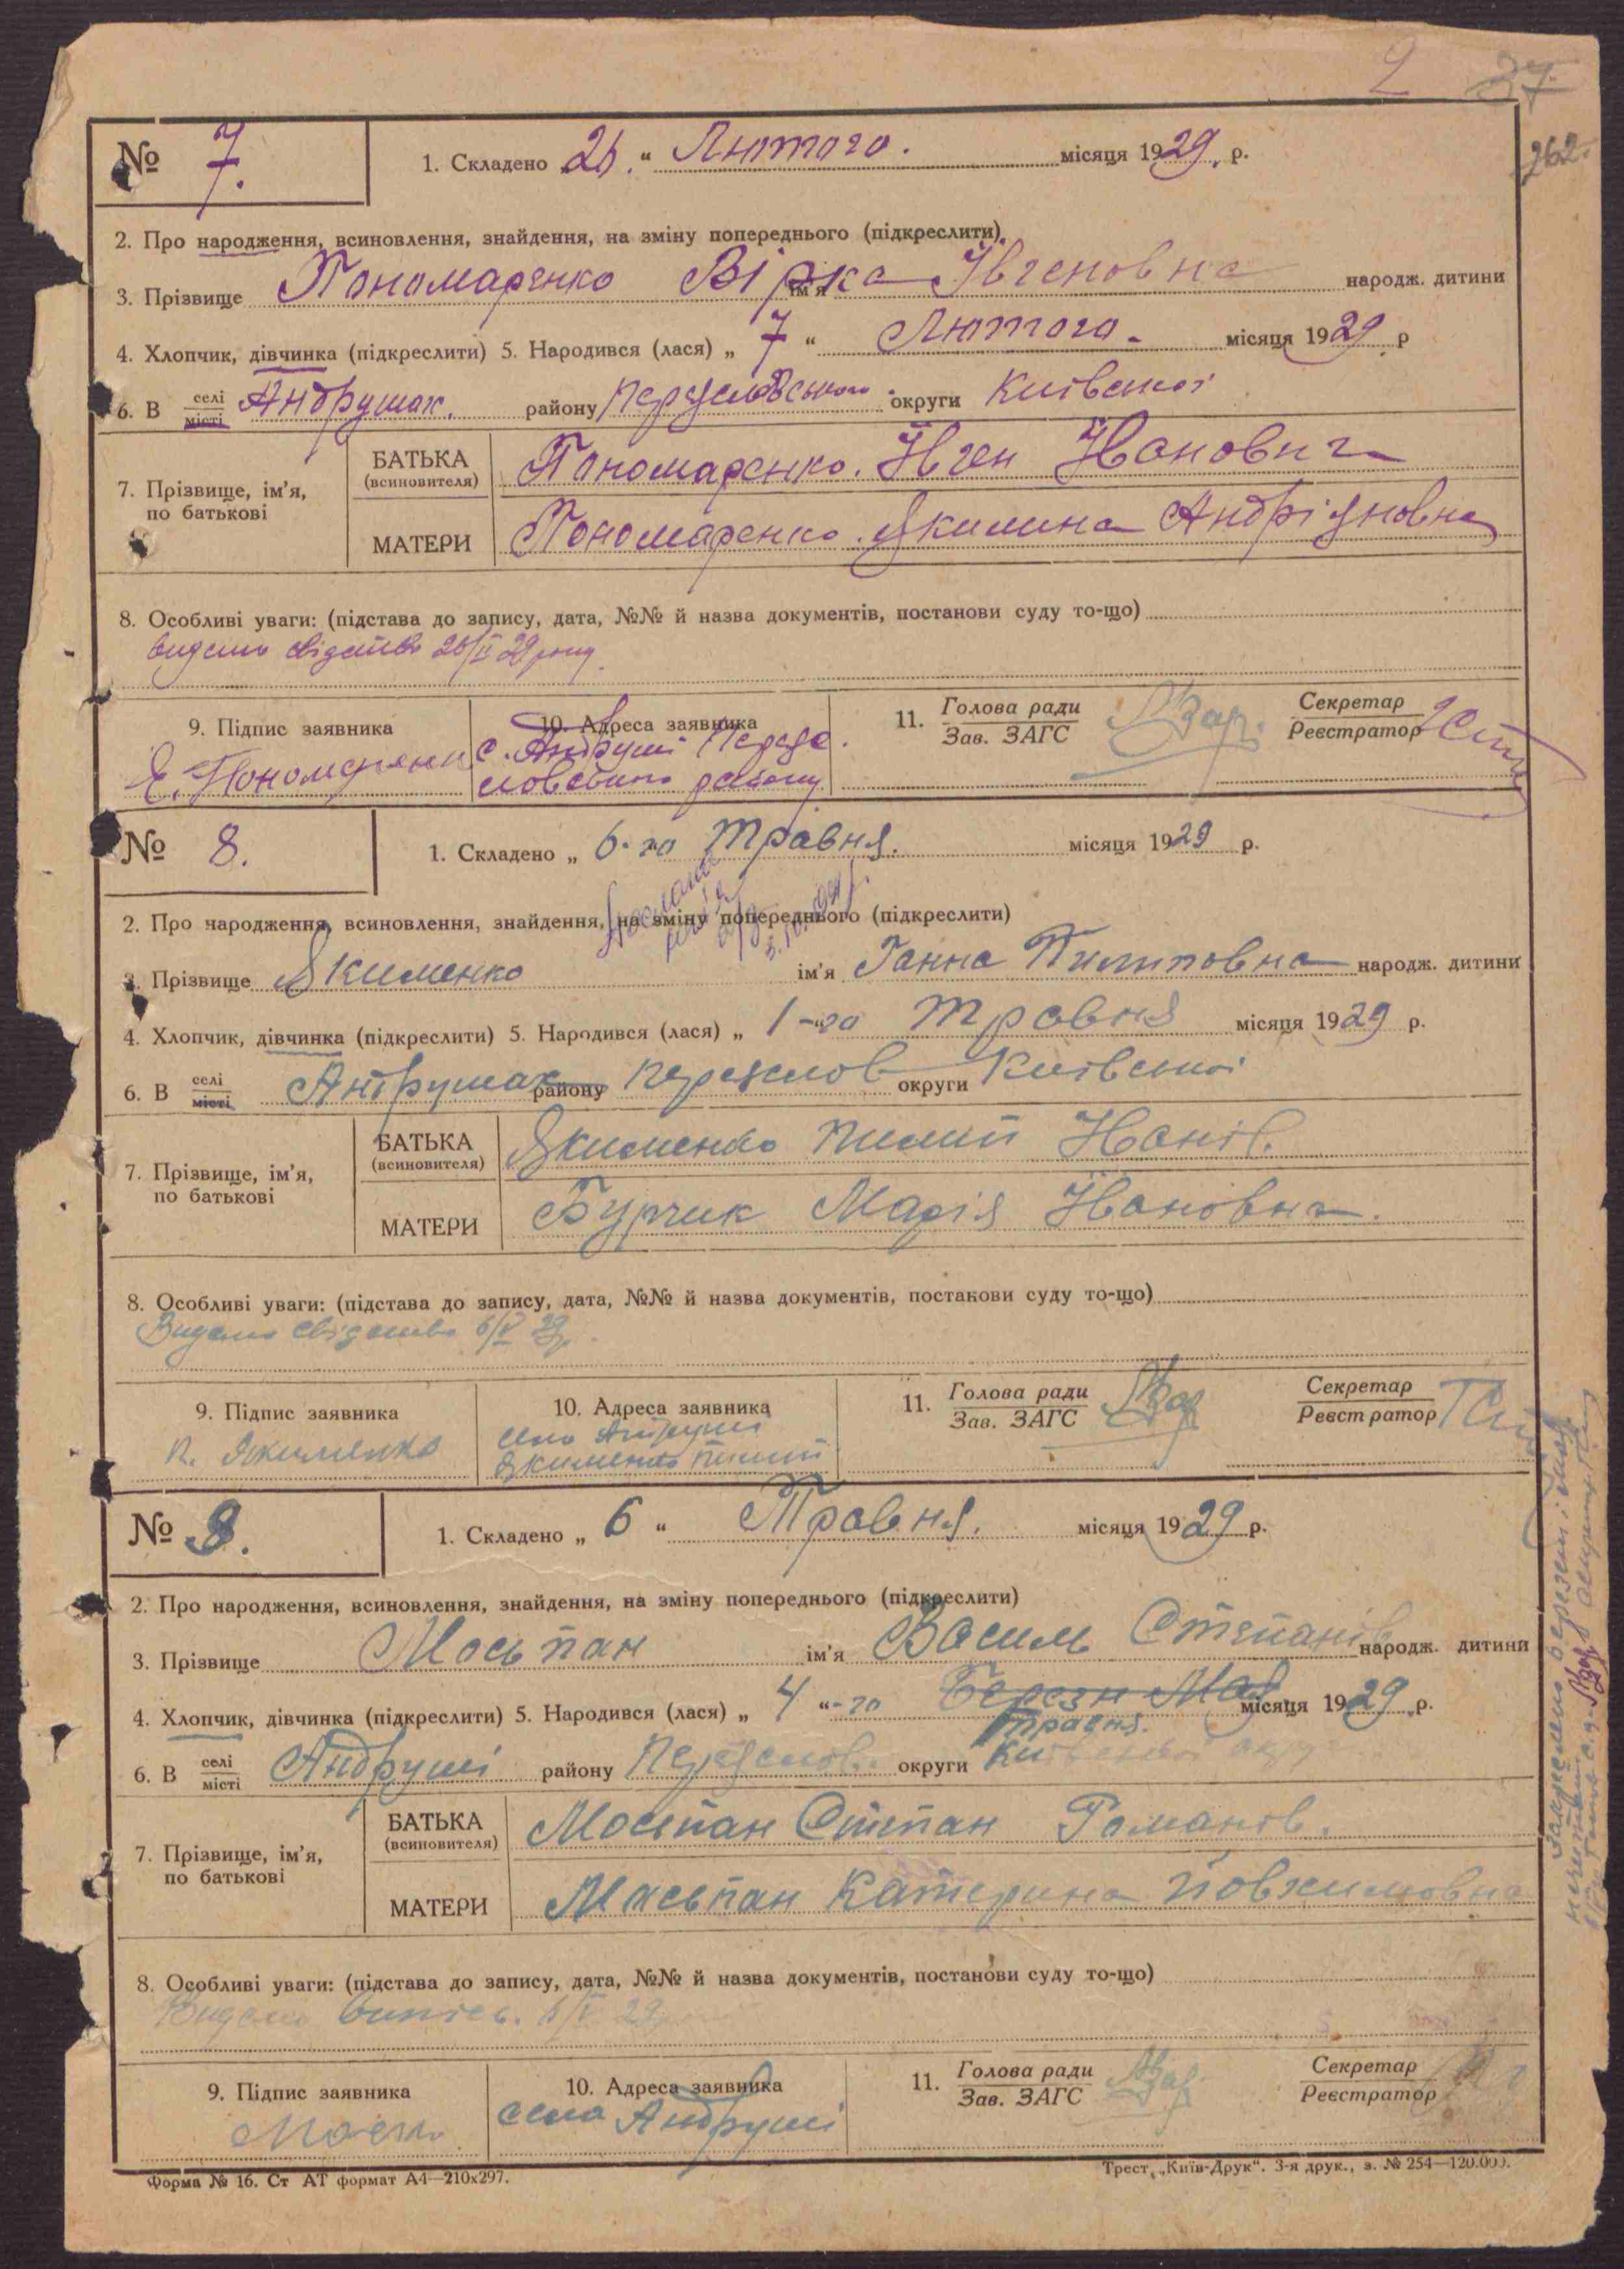 2 37
262.
№ 7. 1. Складено 26. " Лютого. місяця 1929. р.
2. Про народження, всиновлення, знайдення, на зміну попереднього (підкреслити)
3. Прізвище Пономаренко Вірка ім'я Івгеновна народж. дитини
4. Хлопчик, дівчинка (підкреслити) 5. Народився (лася) „ 7 " Лютого. місяця 1929 р
6. В селі місті Андрушах. району Переяславського округи Київської
7. Прізвище, ім'я, по батькові
БАТЬКА (всиновителя) Пономаренко. Івген Іванович
МАТЕРИ Пономаренко. Якилина Андріяновна
8. Особливі уваги: (підстава до запису, дата, №№ й назва документів, постанови суду то-що)
видано свідоцтво 26/II 29 року.
9. Підпис заявника 10. Адреса заявника 11. Голова ради Зав. ЗАГС Секретар Реєстратор
Е. Пономаренко с. Андруші Переяс
ловського району
№ 8. 1. Складено „ 6-го Травня. місяця 1929 р.
2. Про народження, всиновлення, знайдення, на зміну попереднього (підкреслити)
3. Прізвище Якименко ім'я Ганна Пилиповна народж. дитини
4. Хлопчик, дівчинка (підкреслити) 5. Народився (лася) „ 1-го травня місяця 1929 р.
6. В селі місті Андрушах району Переяслов округи Київської
7. Прізвище, ім'я, по батькові
БАТЬКА (всиновителя) Якименко Пилип Іванів.
МАТЕРИ Бурчик Марія Івановна.
8. Особливі уваги: (підстава до запису, дата, №№ й назва документів, постанови суду то-що)
Видано свідоцтво 6/V 29р.
9. Підпис заявника 10. Адреса заявника 11. Голова ради Зав. ЗАГС Секретар Реєстратор
п. Якименко село Андруші
Якименко Пилип
№ 9. 1. Складено „ 6 " Травня. місяця 1929 р.
2. Про народження, всиновлення, знайдення, на зміну попереднього (підкреслити)
3. Прізвище Мосьпан ім'я Василь Степанів народж. дитини
4. Хлопчик, дівчинка (підкреслити) 5. Народився (лася) „ 4 "-го Березн Мая місяця 1929 р.
травня.
6. В селі місті Андруші району Переяслов. округи Київської окр
7. Прізвище, ім'я, по батькові
БАТЬКА (всиновителя) Мосьпан Степан Романів.
МАТЕРИ Мосьпан Катерина Йовхимовна
8. Особливі уваги: (підстава до запису, дата, №№ й назва документів, постанови суду то-що)
Видано випись. 6/V 29р
9. Підпис заявника 10. Адреса заявника 11. Голова ради Зав. ЗАГС Секретар Реєстратор
село Андруші
Форма № 16. Ст АТ формат А4—210х297. Трест „Київ-Друк“. 3-я друк., з. № 254—120.000.